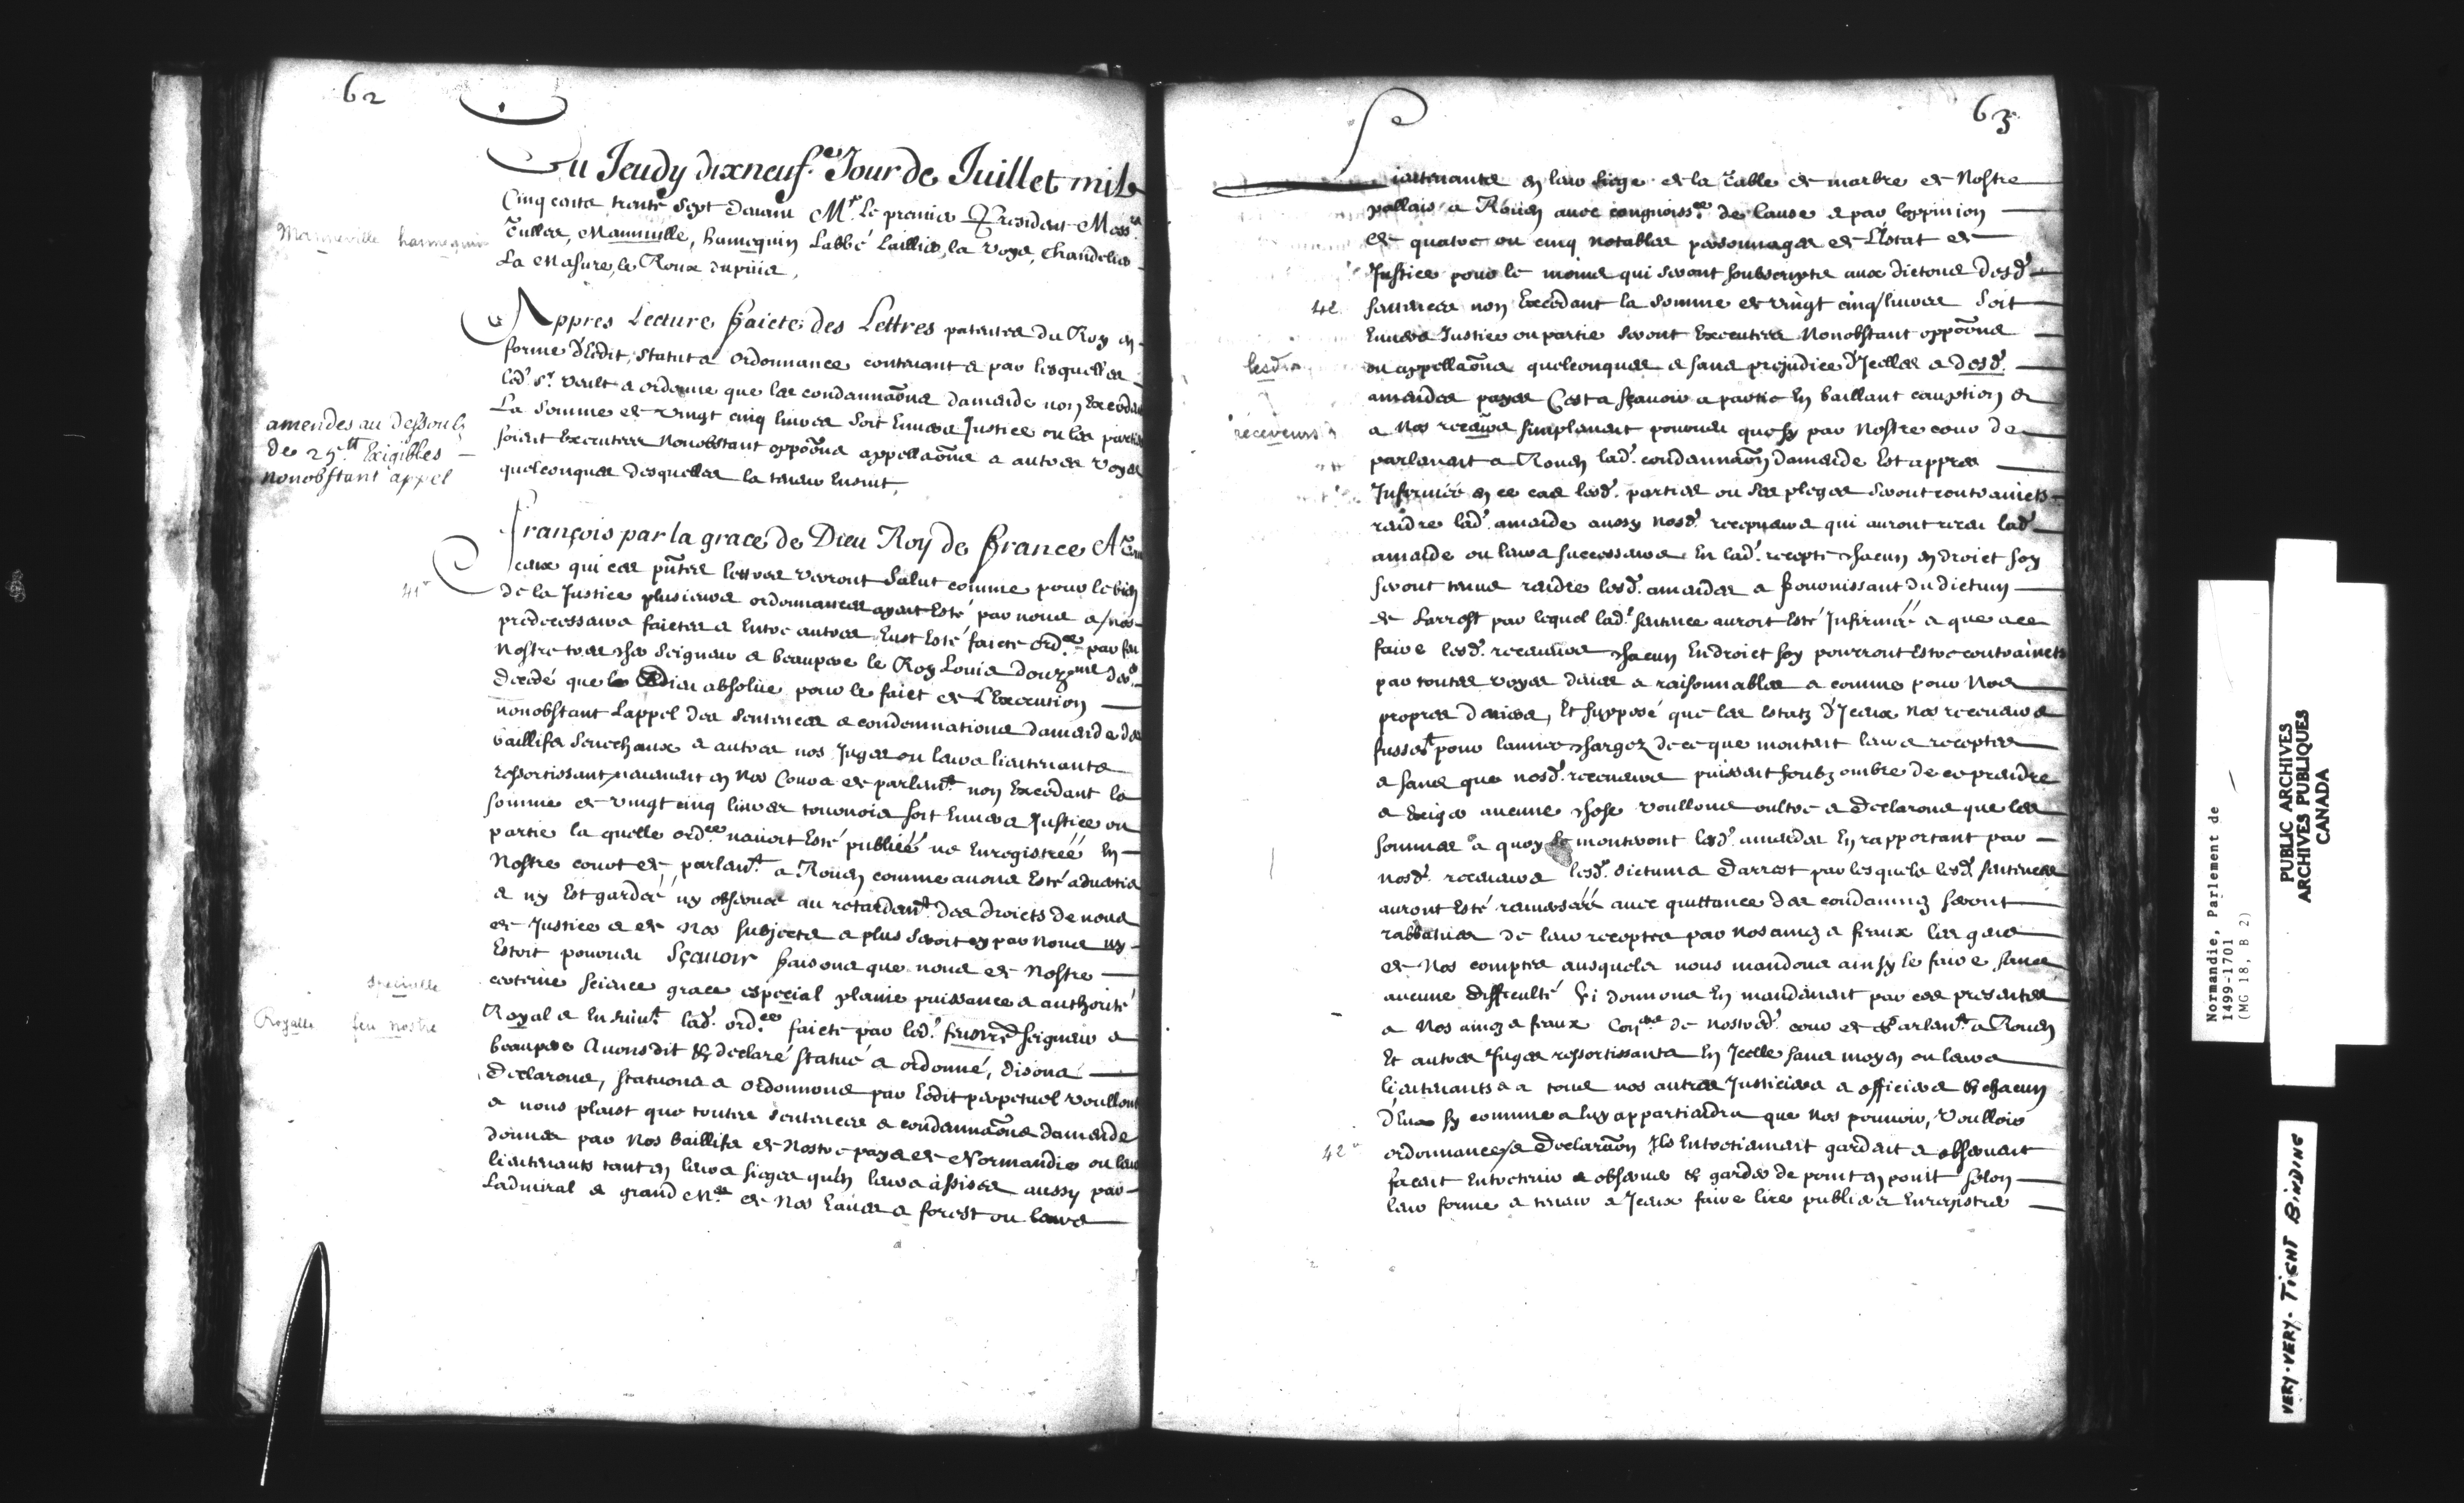 62
Du Jeudy dixneuf.e Jour de Juillet mil
Cinq cents trente Sept devant Mr. Le premier President Messrs
Tulles, Manneville, hannequin Labbé Laillier, la Voye, Chandelier
La Masure, le Roux dupuis,
Manneville hannequin
Appres Lecture faicte des Lettres patentes du Roy en
forme d'Edit, Statut & ordonnance contenant & par lesquelles
led. Sr. veult & ordonne que les condamnaõns damende non Excedan
La somme de vingt cinq livres soit Envers Justice ou les parties
soient Executees Nonobstant oppoõns appellaõns & autres voyes
quelconques desquelles la teneur Ensuit,
amendes au dessoubz
de 25tt Exigibles
nonobstant appel
François par la grace de Dieu Roy de France A Tou
ceux qui ces pntes lettres verront Salut comme pour le bien
41
de la Justice plusieurs ordonnances ayent Esté par nous & nos
predecesseurs faictes & Entre autres Eust Esté faicte ord.ce par feu
Nostre tres cher Seigneur & beaupere le Roy Louis douzme der
decedé que Dieu absolve pour le faict de L'Execution
nonobstant Lappel des Sentences & condemnations damende des
baillifs Senechaux & autres nos Juges ou leurs lieutenants
ressortissant nuement en Nos Cours de parlemt. non Excedant la
somme de vingt cinq livres tournois soit Envers Justice ou
partie la quelle ord.ce n'avoit Esté publiéé ne Enregistréé En
Nostre court de parlemt. a Rouen comme avons Esté advertis
& ny Est gardéé ny observéé au retardemt. des droicts de nous
de Justice & de Nos subjects & plus seroit sy par Nous ny
Estoit pourveu Sçavoir faisons que nous de Nostre
certeine science grace especial plaine puissance & authorité
specialle
Royalle feu nostre
Royal & Ensuivt. lad. ord.ce faicte par led. feu nre Seigneur &
beaupere Avons dit & declaré statué & ordonné, disons
Declarons, statuons & ordonnons par Edit perpetuel voullons
& nous plaist que toutes sentences & condamnaõns damende
données par Nos baillifs de Nostre pays de Normandie ou leurs
lieutenants tant en leurs sieges qu'en leurs assises aussy par
Ladmiral & grand Me. de Nos Eaues & forest ou leurs
63
Lieutenants en leur siege de la Table de marbre de Nostre
pallais a Rouen avec congnoissce de cause & par loppinion
de quatre ou cinq notables personnages de L'Estat de
Justice pour le moins qui seront soubscripts aux dictons desd.
42 sentences non Excedant la somme de vingt cinq livres soit
Envers Justice ou partie seront Executees Nonobstant oppoõns
ou appellaõns quelconques & sans prejudice d'Jcelles & desd.
lesdts
amendes payer C'est a sçavoir a partie En baillant cauption &
a Nos receveurs simplement pourveu que sy par Nostre cour de
receveurs
parlement a Rouen lad. condamnaõn damende Est appres
Infirméé en ce cas lesd. parties ou ses pleges seront contraincts
rendre lad. amende aussy nosd. recepveurs qui auront receu lad.
amende ou leurs successeurs En lad. recepte chacun endroict soy
seront tenus rendre lesd. amendes & fournissant du dictum
de Larrest par lequel lad. sentence auroit Esté Infirméé & que a ce
faire lesd. receveurs chacun Endroict soy pourront Estre contraincts
par toutes voyes deues & raisonnables & comme pour Nos
propres deniers, Et supposé que les Estatz d'Jceux Nos receveurs
fussent pour lannee chargez de ce que montent leurs receptes
& sans que nosd. receveurs puissent soubz ombre de ce prendre
& Exiger aucune chose voullons oultre & Declarons que les
sommes a quoy se monteront lesd. amendes En rapportant par
nosd. receveurs lesd. dictums Darrest par lesquels lesd. sentences
auront Esté avec quittance des condamnez seront
rabbatues de leur receptes par Nos amez & feaux les gens
de Nos comptes ausquels nous mandons ainsy le faire sans
aucune difficulté Si donnons En mandement par ces presentes
a Nos amez & feaux Coners de nostred. cour de Parlemt. a Rouen
Et autres Juges ressortissants En Jcelle sans moyen ou leurs
lieutenants & a tous nos autres Justiciers & officiers & chacun
d'Eux sy comme a luy appartiendra que Nos pouvoir, Vouloir
42
ordonnances & Declaraõn Jls Entretiennent gardent & observent
facent Entretenir & observer & garder de point en point selon
leur forme & teneur & Jceux faire lire publier & Enregistrer
Normandie, Parlement de
1499-1701
(MG 18, B 2)
PUBLIC ARCHIVES
ARCHIVES PUBLIQUES
CANADA
VERY-VERY-TIGHT BINDING